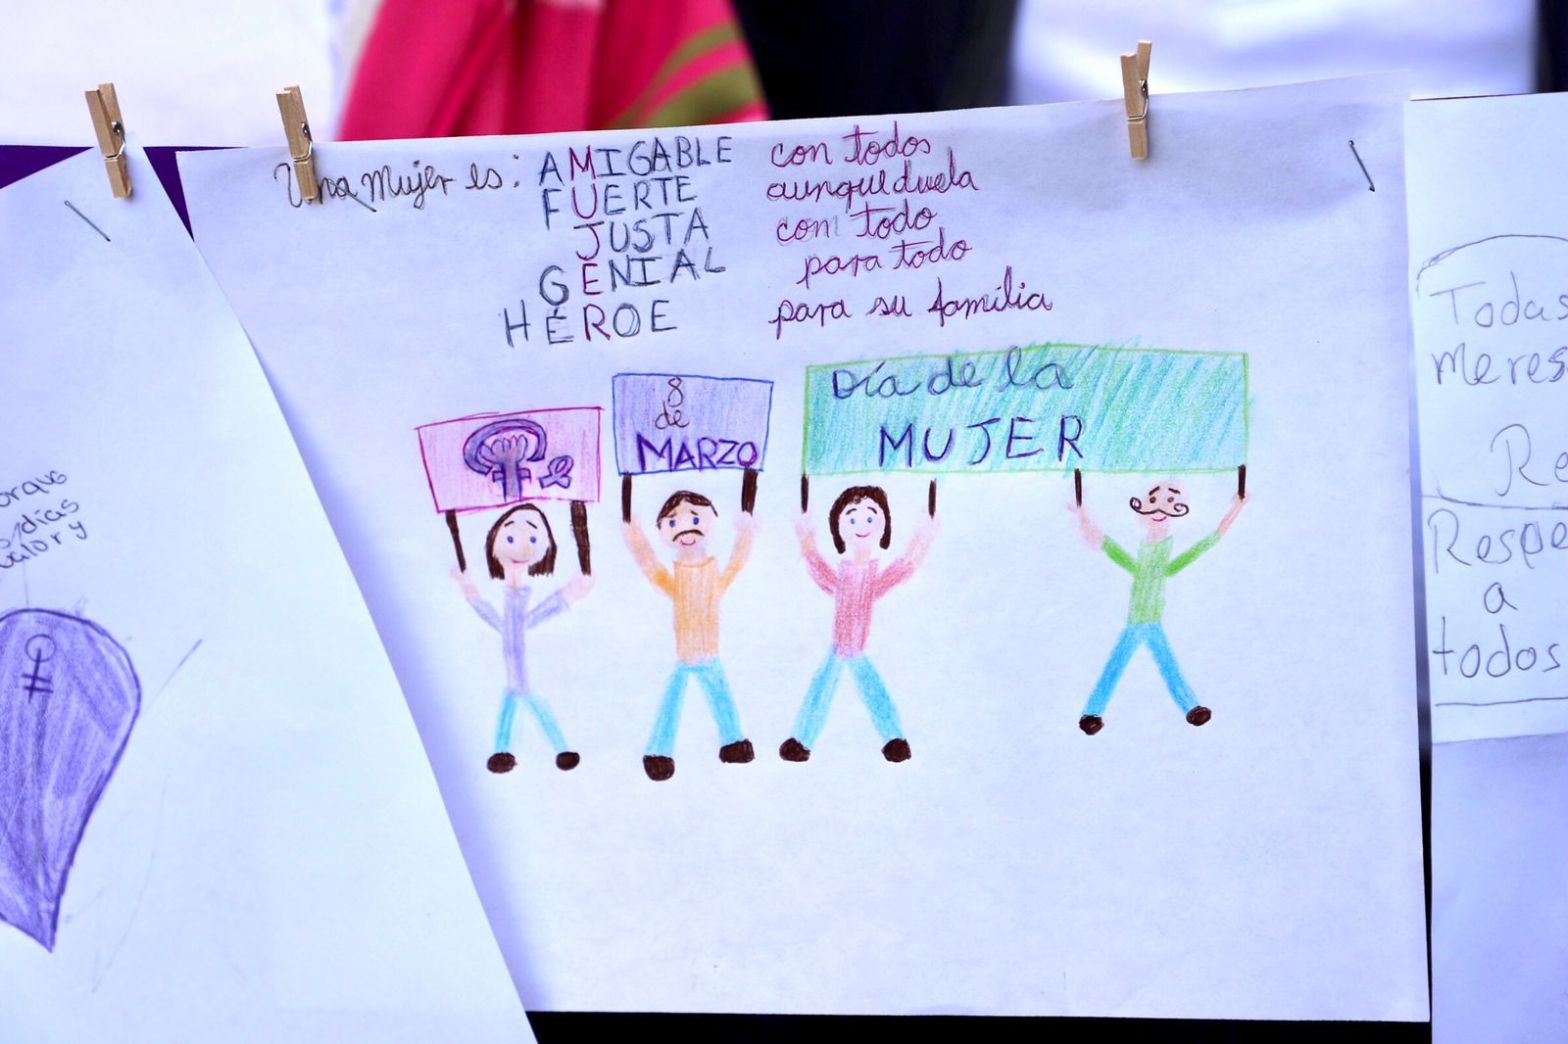 Una Mujer es: AMIGABLE con todos
FUERTE aunque duela
JUSTA con todo
GENIAL para todo
HÉROE para su família
8
de
MARZO
Día de la
MUJER
días
y
Todas
Respe
a
todos